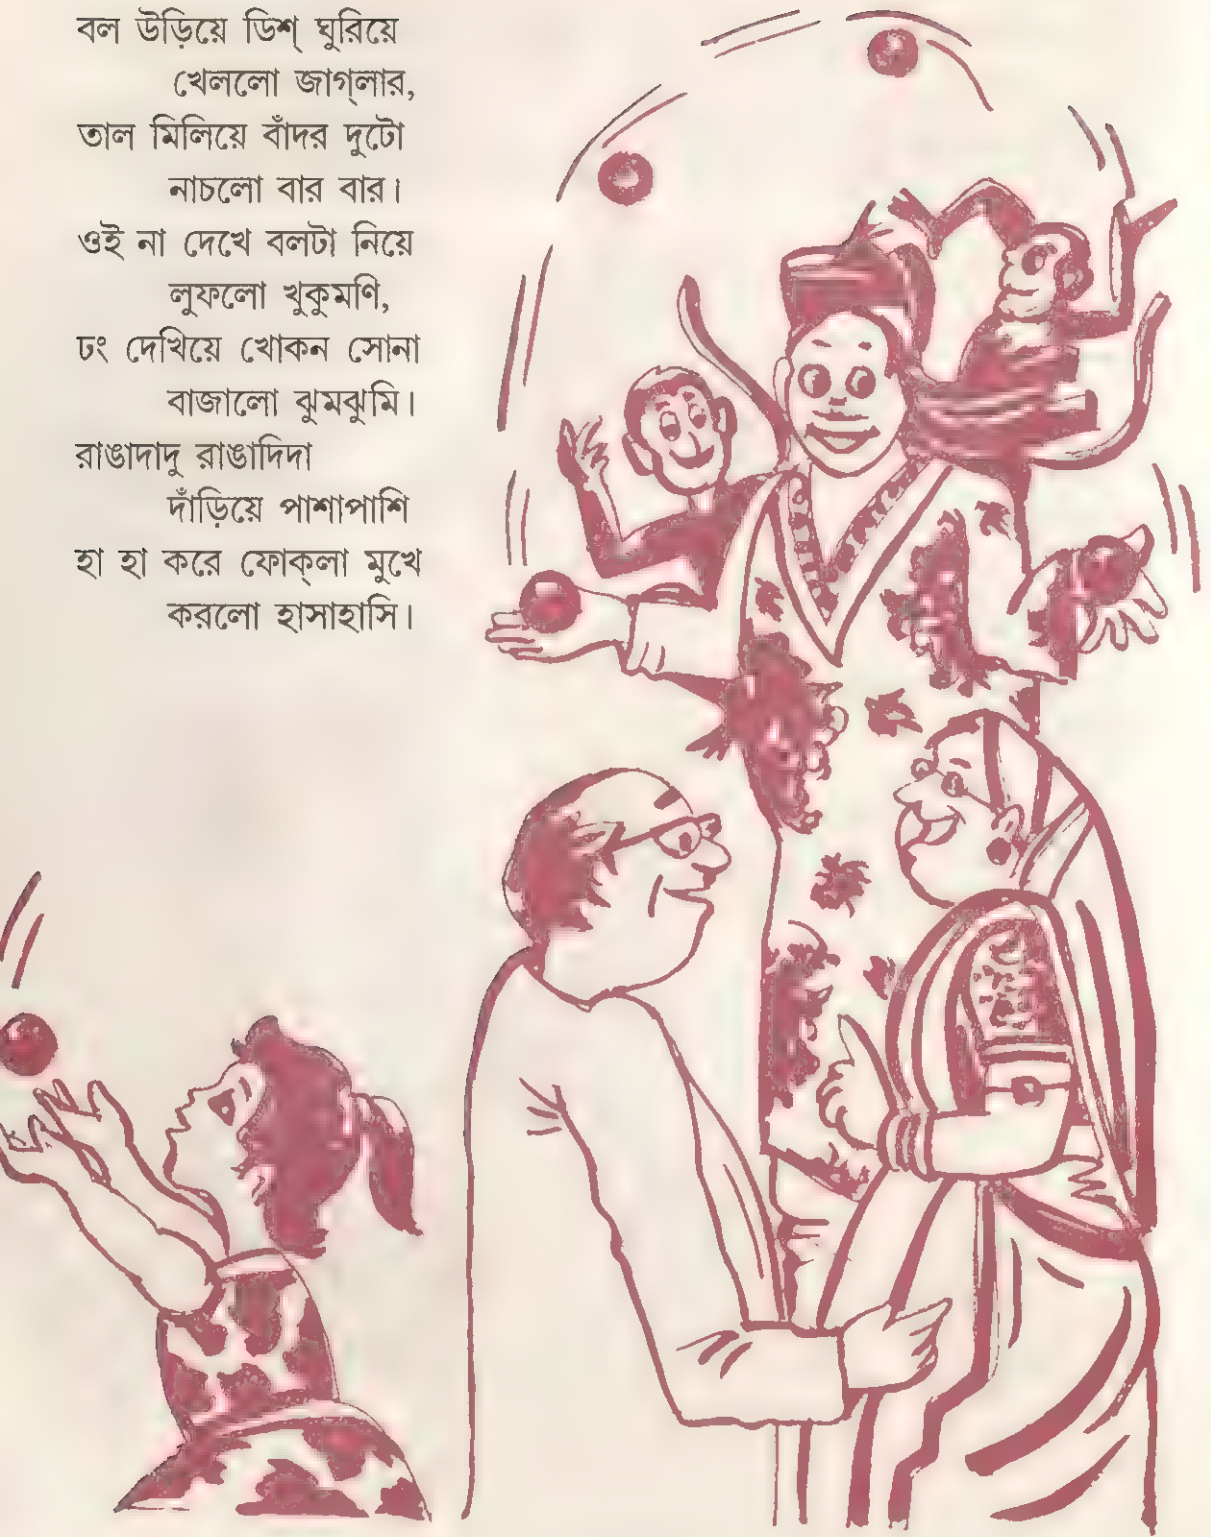 বল উড়িয়ে ডিশ্ ঘুরিয়ে
খেললো জাগ্‌লার,
তাল মিলিয়ে বাঁদর দুটো
নাচলো বার বার।
ওই না দেখে বলটা নিয়ে
লুফলো খুকুমণি,
ঢং দেখিয়ে খোকন সোনা
বাজালো ঝুমঝুমি।
রাঙাদাদু রাঙাদিদা
দাঁড়িয়ে পাশাপাশি
হা হা করে ফোক্‌লা মুখে
করলো হাসাহাসি।